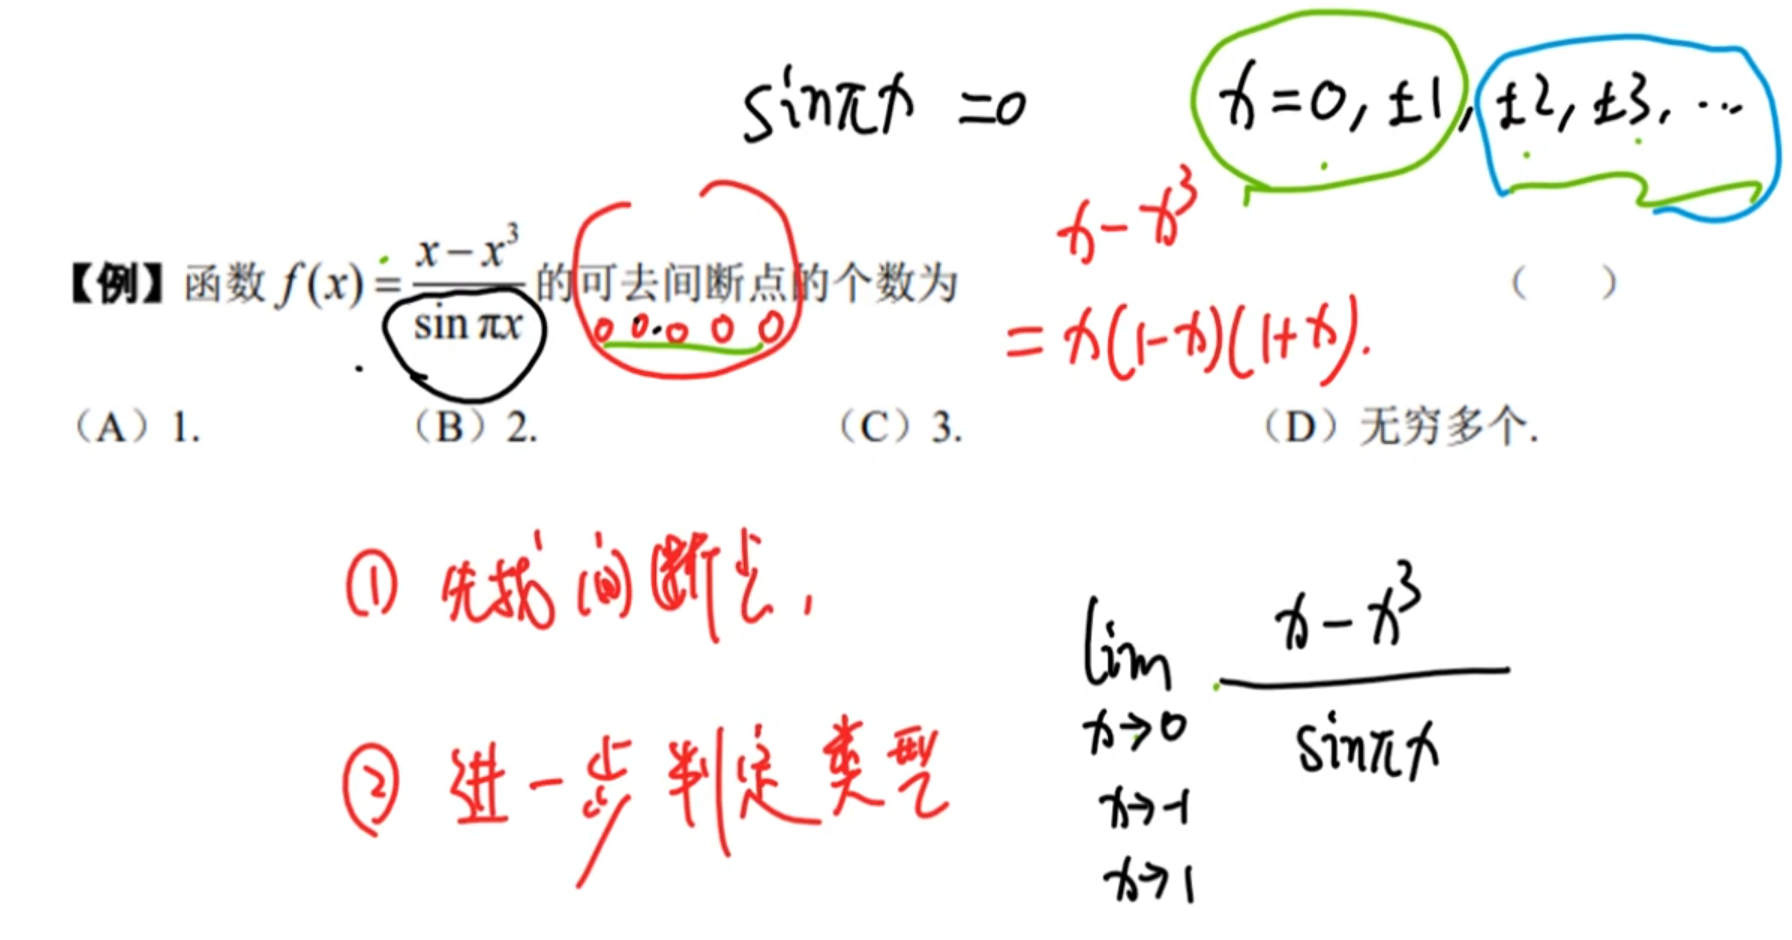 sinπx =0 x=0, ±1, ±2, ±3, ...
x-x³
【例】函数 f(x) = \frac{x-x³}{sin πx} 的可去间断点的个数为 ( )
= x(1-x)(1+x).
(A) 1. (B) 2. (C) 3. (D) 无穷多个.
① 先找间断点,
lim \frac{x-x³}{sinπx}
x→0
② 进一步判定类型
x→-1
x→1